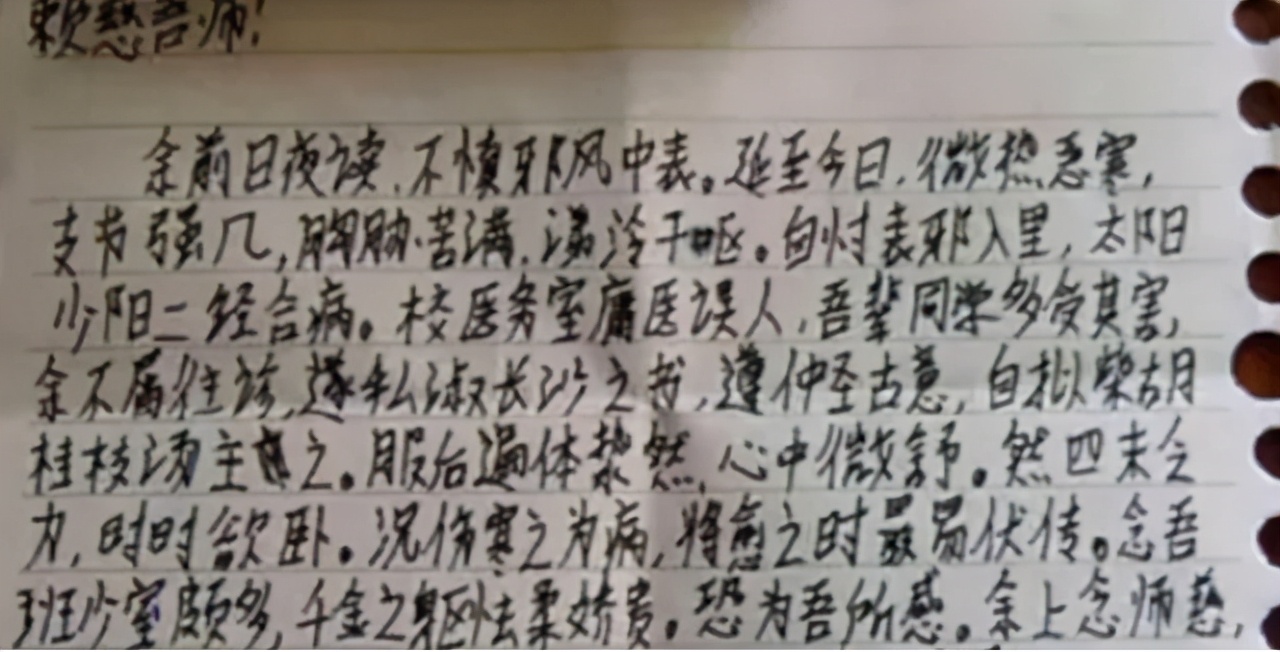 赖慈吾师!
余前日夜读,不慎邪风中表。延至今日,微热恶寒,
支节强几,胸胁苦满,涕泠干呕。自忖表邪入里,太阳
少阳二经合病。校医务室庸医误人,吾辈同学多受其害,
余不屑往诊,遂私淑长沙之书,遵仲圣古意,自拟柴胡
桂枝汤主之。服后遍体漐然,心中微舒。然四末乏
力,时时欲卧。况伤寒之为病,将愈之时最易伏传。念吾
班少室颇多,千金之躯怯柔娇贵。恐为吾所感。余上念师慈,